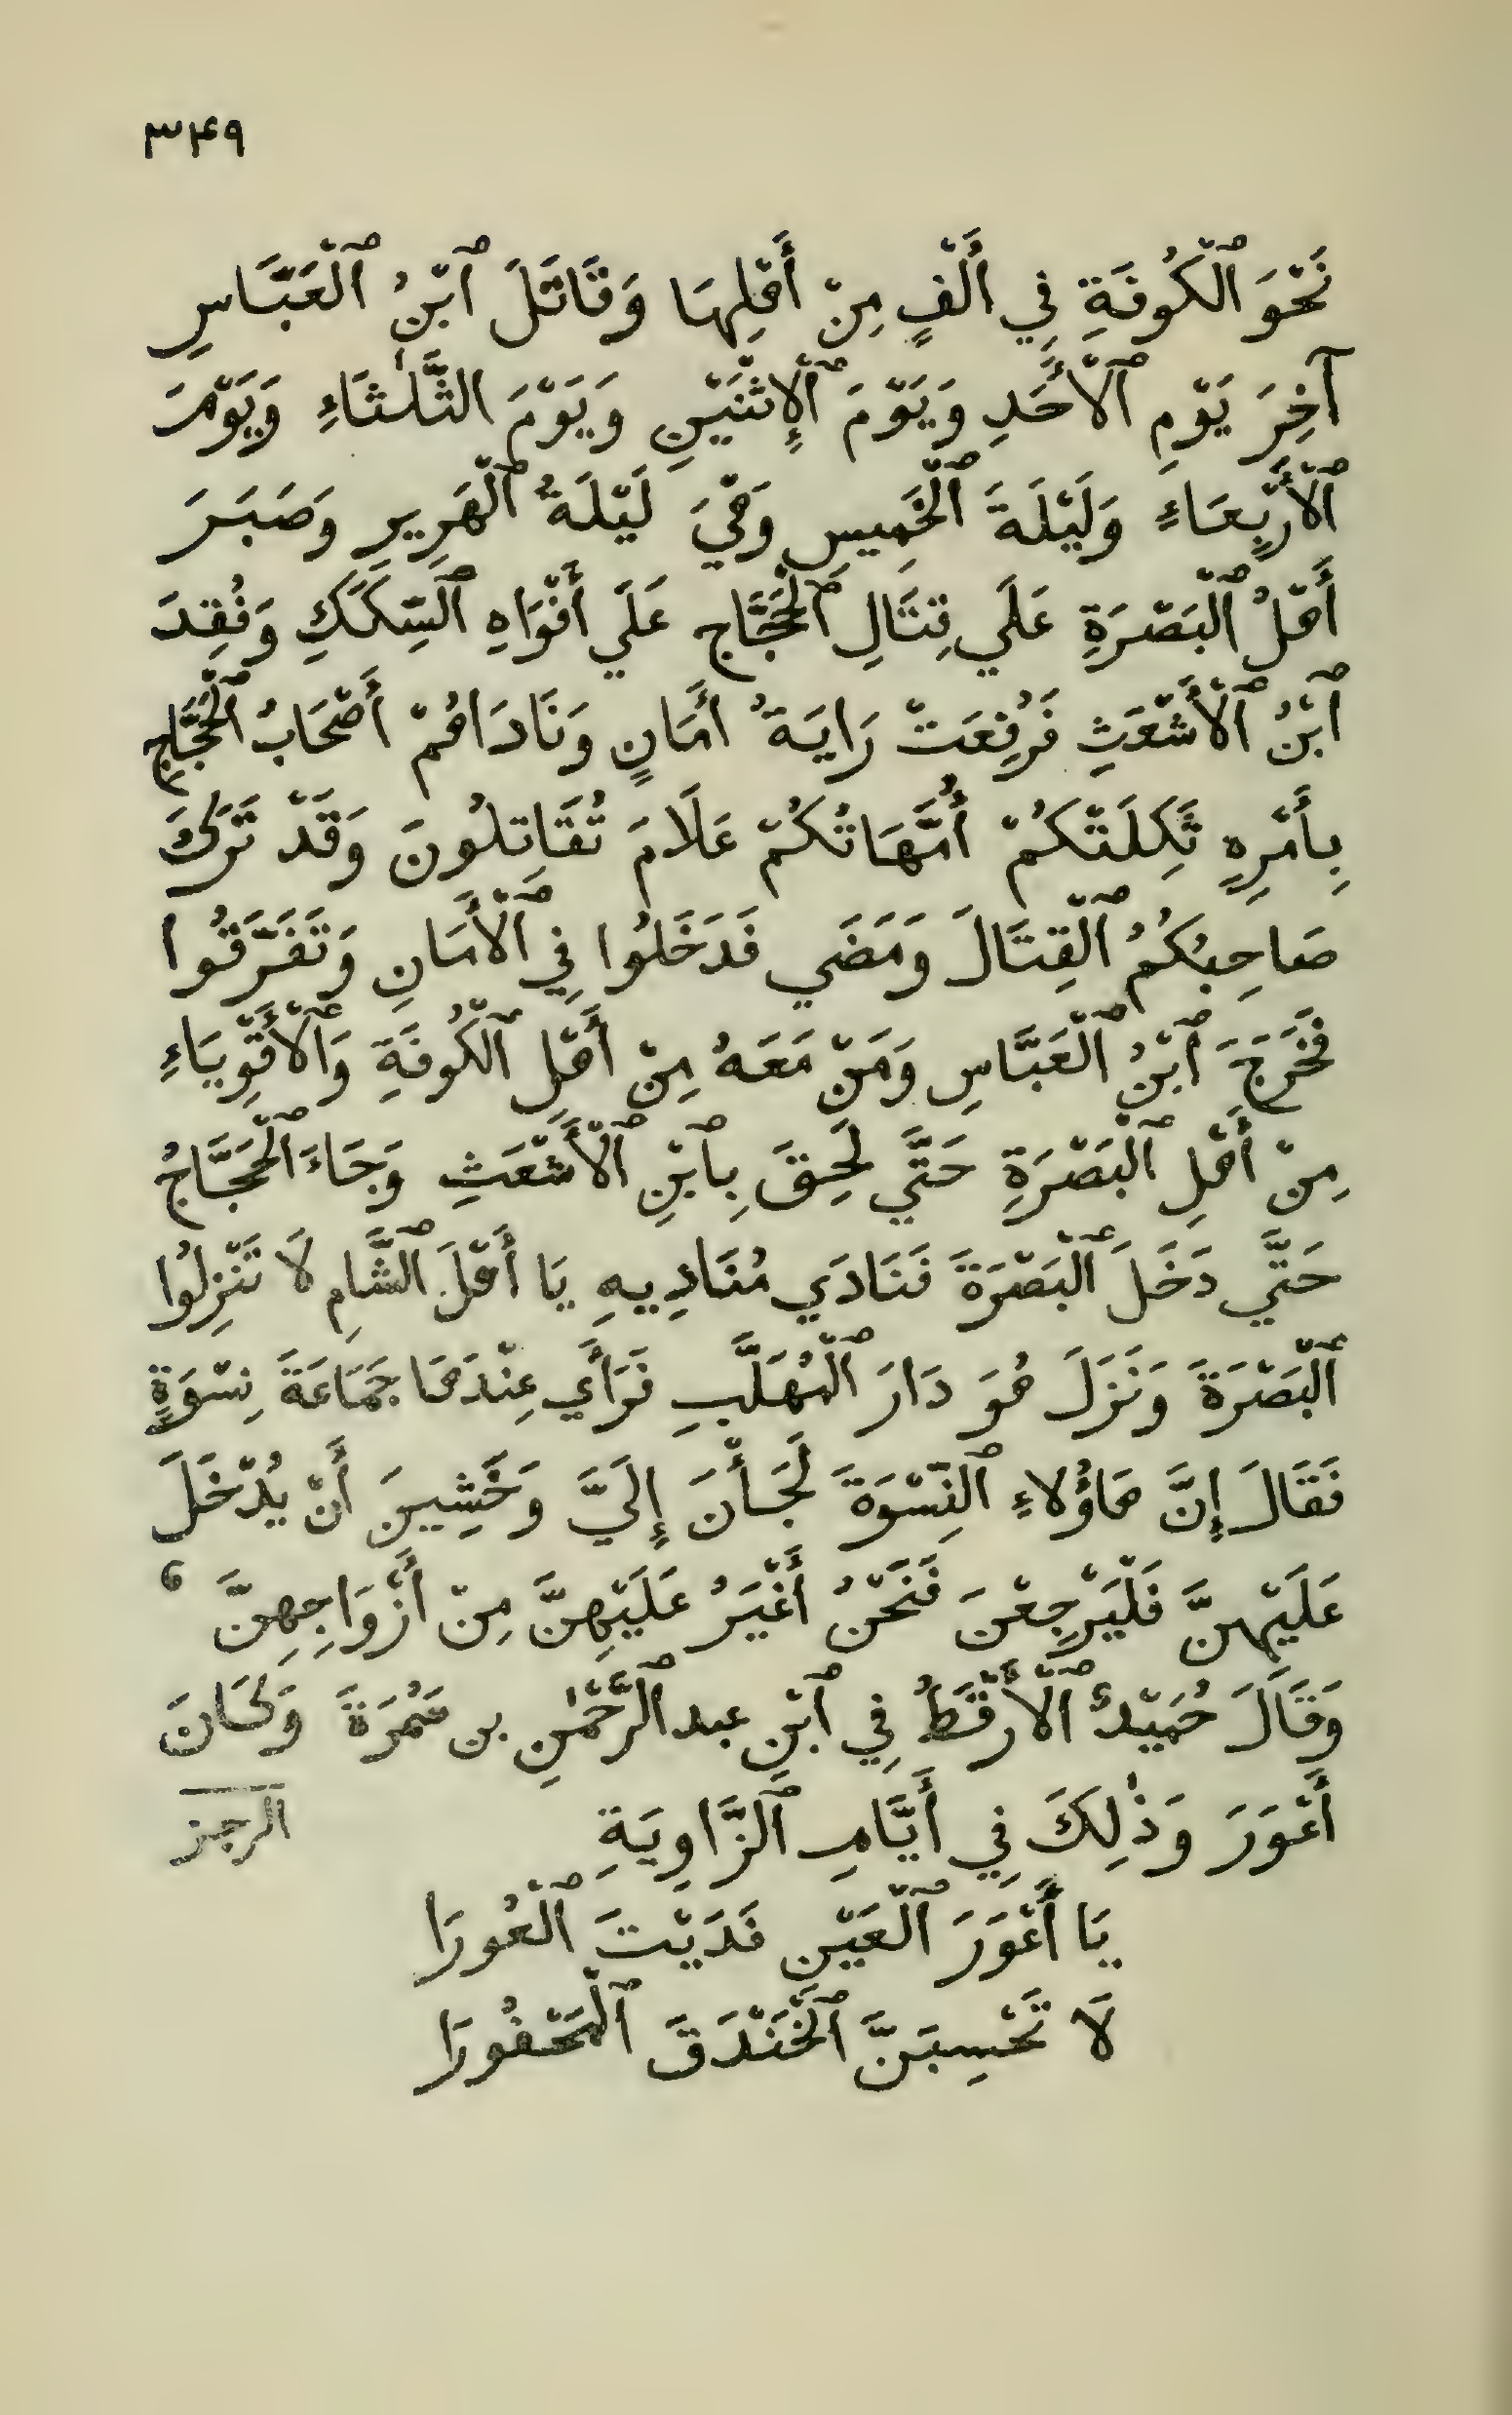 ٣۴٩
نَحْوَ ٱلْكُوفَةِ فِي أَلْفٍ مِنْ أَهْلِهَا وَقَاتَلَ ٱبْنُ ٱلْعَبَّاسِ
آخِرَ يَوْمِ ٱلْأَحَدِ وَيَوْمَ ٱلْإِثْنَيْنِ وَيَوْمَ الثَّلٰثَاءِ وَيَوْمَ
ٱلْأَرْبِعَاءِ وَلَيْلَةَ ٱلْخَمِيسِ وَهْيَ لَيْلَةُ ٱلْهَرِيرِ وَصَبَرَ
أَهْلُ ٱلْبَصْرَةِ عَلَي قِتَالِ ٱلْحَجَّاجِ عَلَي أَفْوَاهِ ٱلسِّكَكِ وَفُقِدَ
ٱبْنُ ٱلْأَشْعَثِ فَرُفِعَتْ رَايَةُ أَمَانٍ وَنَادَاهُمْ أَصْحَابُ ٱلْحَجَّاجِ
بِأَمْرِهِ ثَكِلَتْكُمْ أُمَّهَاتُكُمْ عَلَامَ تُقَاتِلُونَ وَقَدْ تَرَكَ
صَاحِبُكُمُ ٱلْقِتَالَ وَمَضَي فَدَخَلُوا فِي ٱلْأَمَانِ وَتَفَرَّقُوا
فَخَرَجَ ٱبْنُ ٱلْعَبَّاسِ وَمَنْ مَعَهُ مِنْ أَهْلِ ٱلْكُوفَةِ وَٱلْأَقْوِيَاءِ
مِنْ أَهْلِ ٱلْبَصْرَةِ حَتَّي لَحِقَ بِٱبْنِ ٱلْأَشْعَثِ وَجَاءَ ٱلْحَجَّاجُ
حَتَّي دَخَلَ ٱلْبَصْرَةَ فَنَادَي مُنَادِيهِ يَا أَهْلَ ٱلشَّامِ لَا تَنْزِلُوا
ٱلْبَصْرَةَ وَنَزَلَ هُوَ دَارَ ٱلْمُهَلَّبِ فَرَأَي عِنْدَهَا جَمَاعَةَ نِسْوَةٍ
فَقَالَ إِنَّ هَاؤُلَاءِ ٱلنِّسْوَةَ لَجَأْنَ إِلَيَّ وَخَشِينَ أَنْ يُدْخَلَ
عَلَيْهِنَّ فَلْيَرْجِعْنَ فَنَحْنُ أَغْيَرُ عَلَيْهِنَّ مِنْ أَزْوَاجِهِنَّ ،
وَقَالَ حُمَيْدٌ ٱلْأَرْقَطُ فِي ٱبْنِ عبد ٱلرَّحْمٰنِ بن سَمُرَةَ وَكَانَ
أَعْوَرَ وَذٰلِكَ فِي أَيَّامِ ٱلزَّاوِيَةِ الرجز
يَا أَعْوَرَ ٱلْعَيْنِ فَدَيْتَ ٱلْعُورَا
لَا تَحْسِبَنَّ ٱلْخَنْدَقَ ٱلْمَحْفُورَا